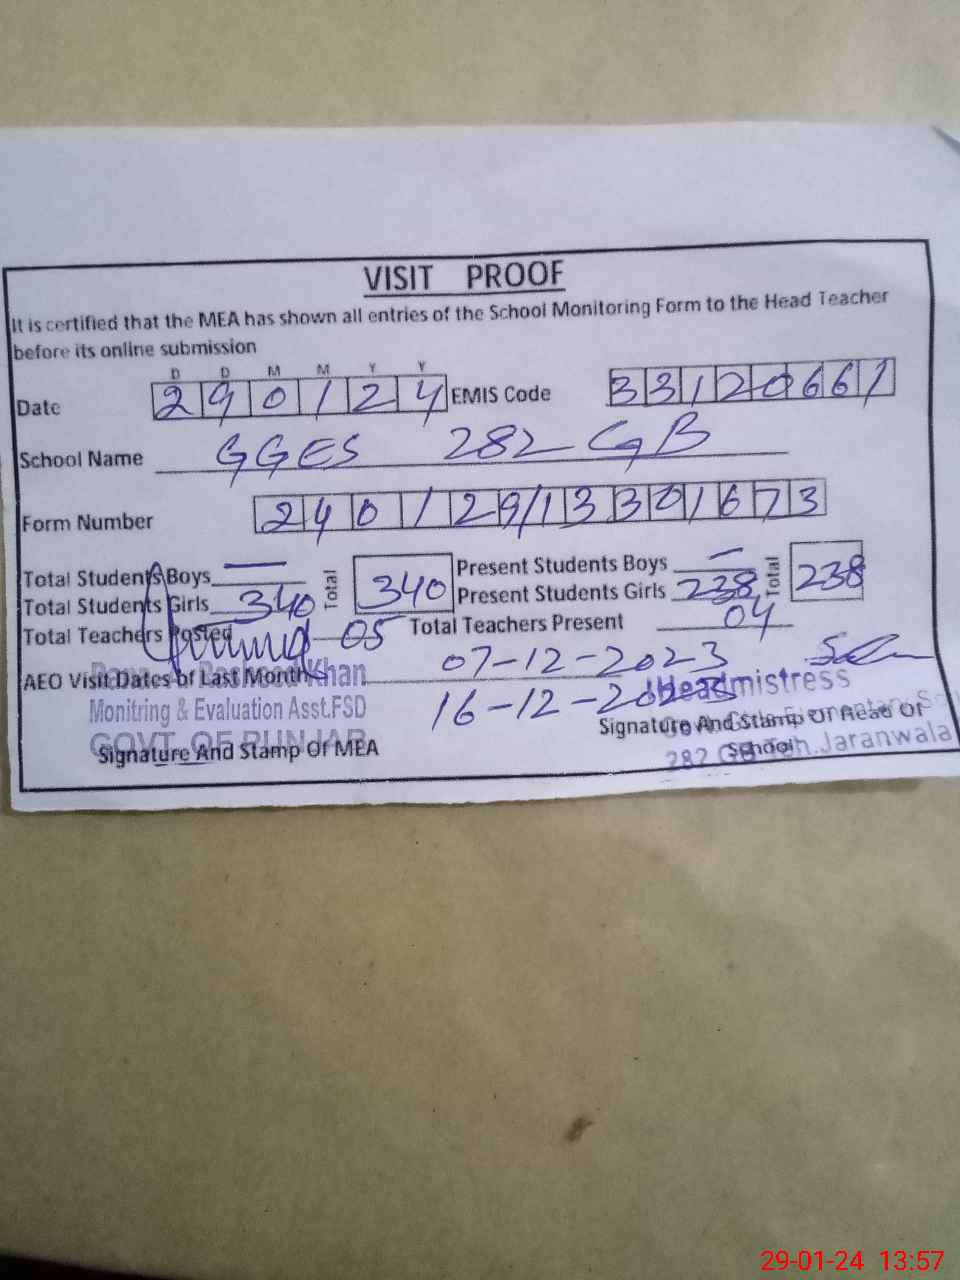 VISIT PROOF
It is certified that the MEA has shown all entries of the School Monitoring Form to the Head Teacher
before its online submission
D D M M Y Y
Date 290124 EMIS Code 33120661
School Name GGES 282 GB
Form Number 240129/13301673
Total Students Boys — Total 340 Present Students Boys — Total 238
Total Students Girls 340 Present Students Girls 238
Total Teachers Posted 05 Total Teachers Present 04
AEO Visit Dates of Last Month 07-12-2023
16-12-2023
Rasheed Khan
Monitring & Evaluation Asst.FSD
GOVT. OF PUNJAB
Signature And Stamp Of MEA
Headmistress
Govt. Girls Elementary
282 GB Teh. Jaranwala
Signature And Stamp Of Head Of
School
29-01-24 13:57